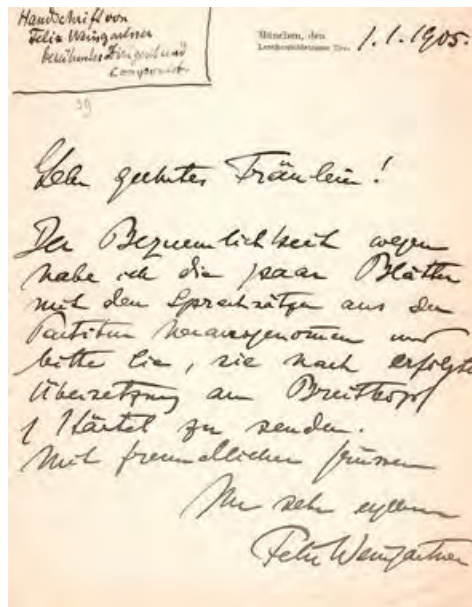 Handschrift von
Felix Weingartner
berühmter Dirigent und
Componist.
39
München, den
1.1.1905.
Sehr geehrtes Fräulein!
Der Bequemlichkeit wegen
habe ich die paar Blätter
mit den Sprechsätzen aus der
Partitur herausgenommen und
bitte Sie, sie nach erfolgter
Übersetzung an Breitkopf
& Härtel zu senden.
Mit freundlichen Grüssen
Ihr sehr ergebener
Felix Weingartner